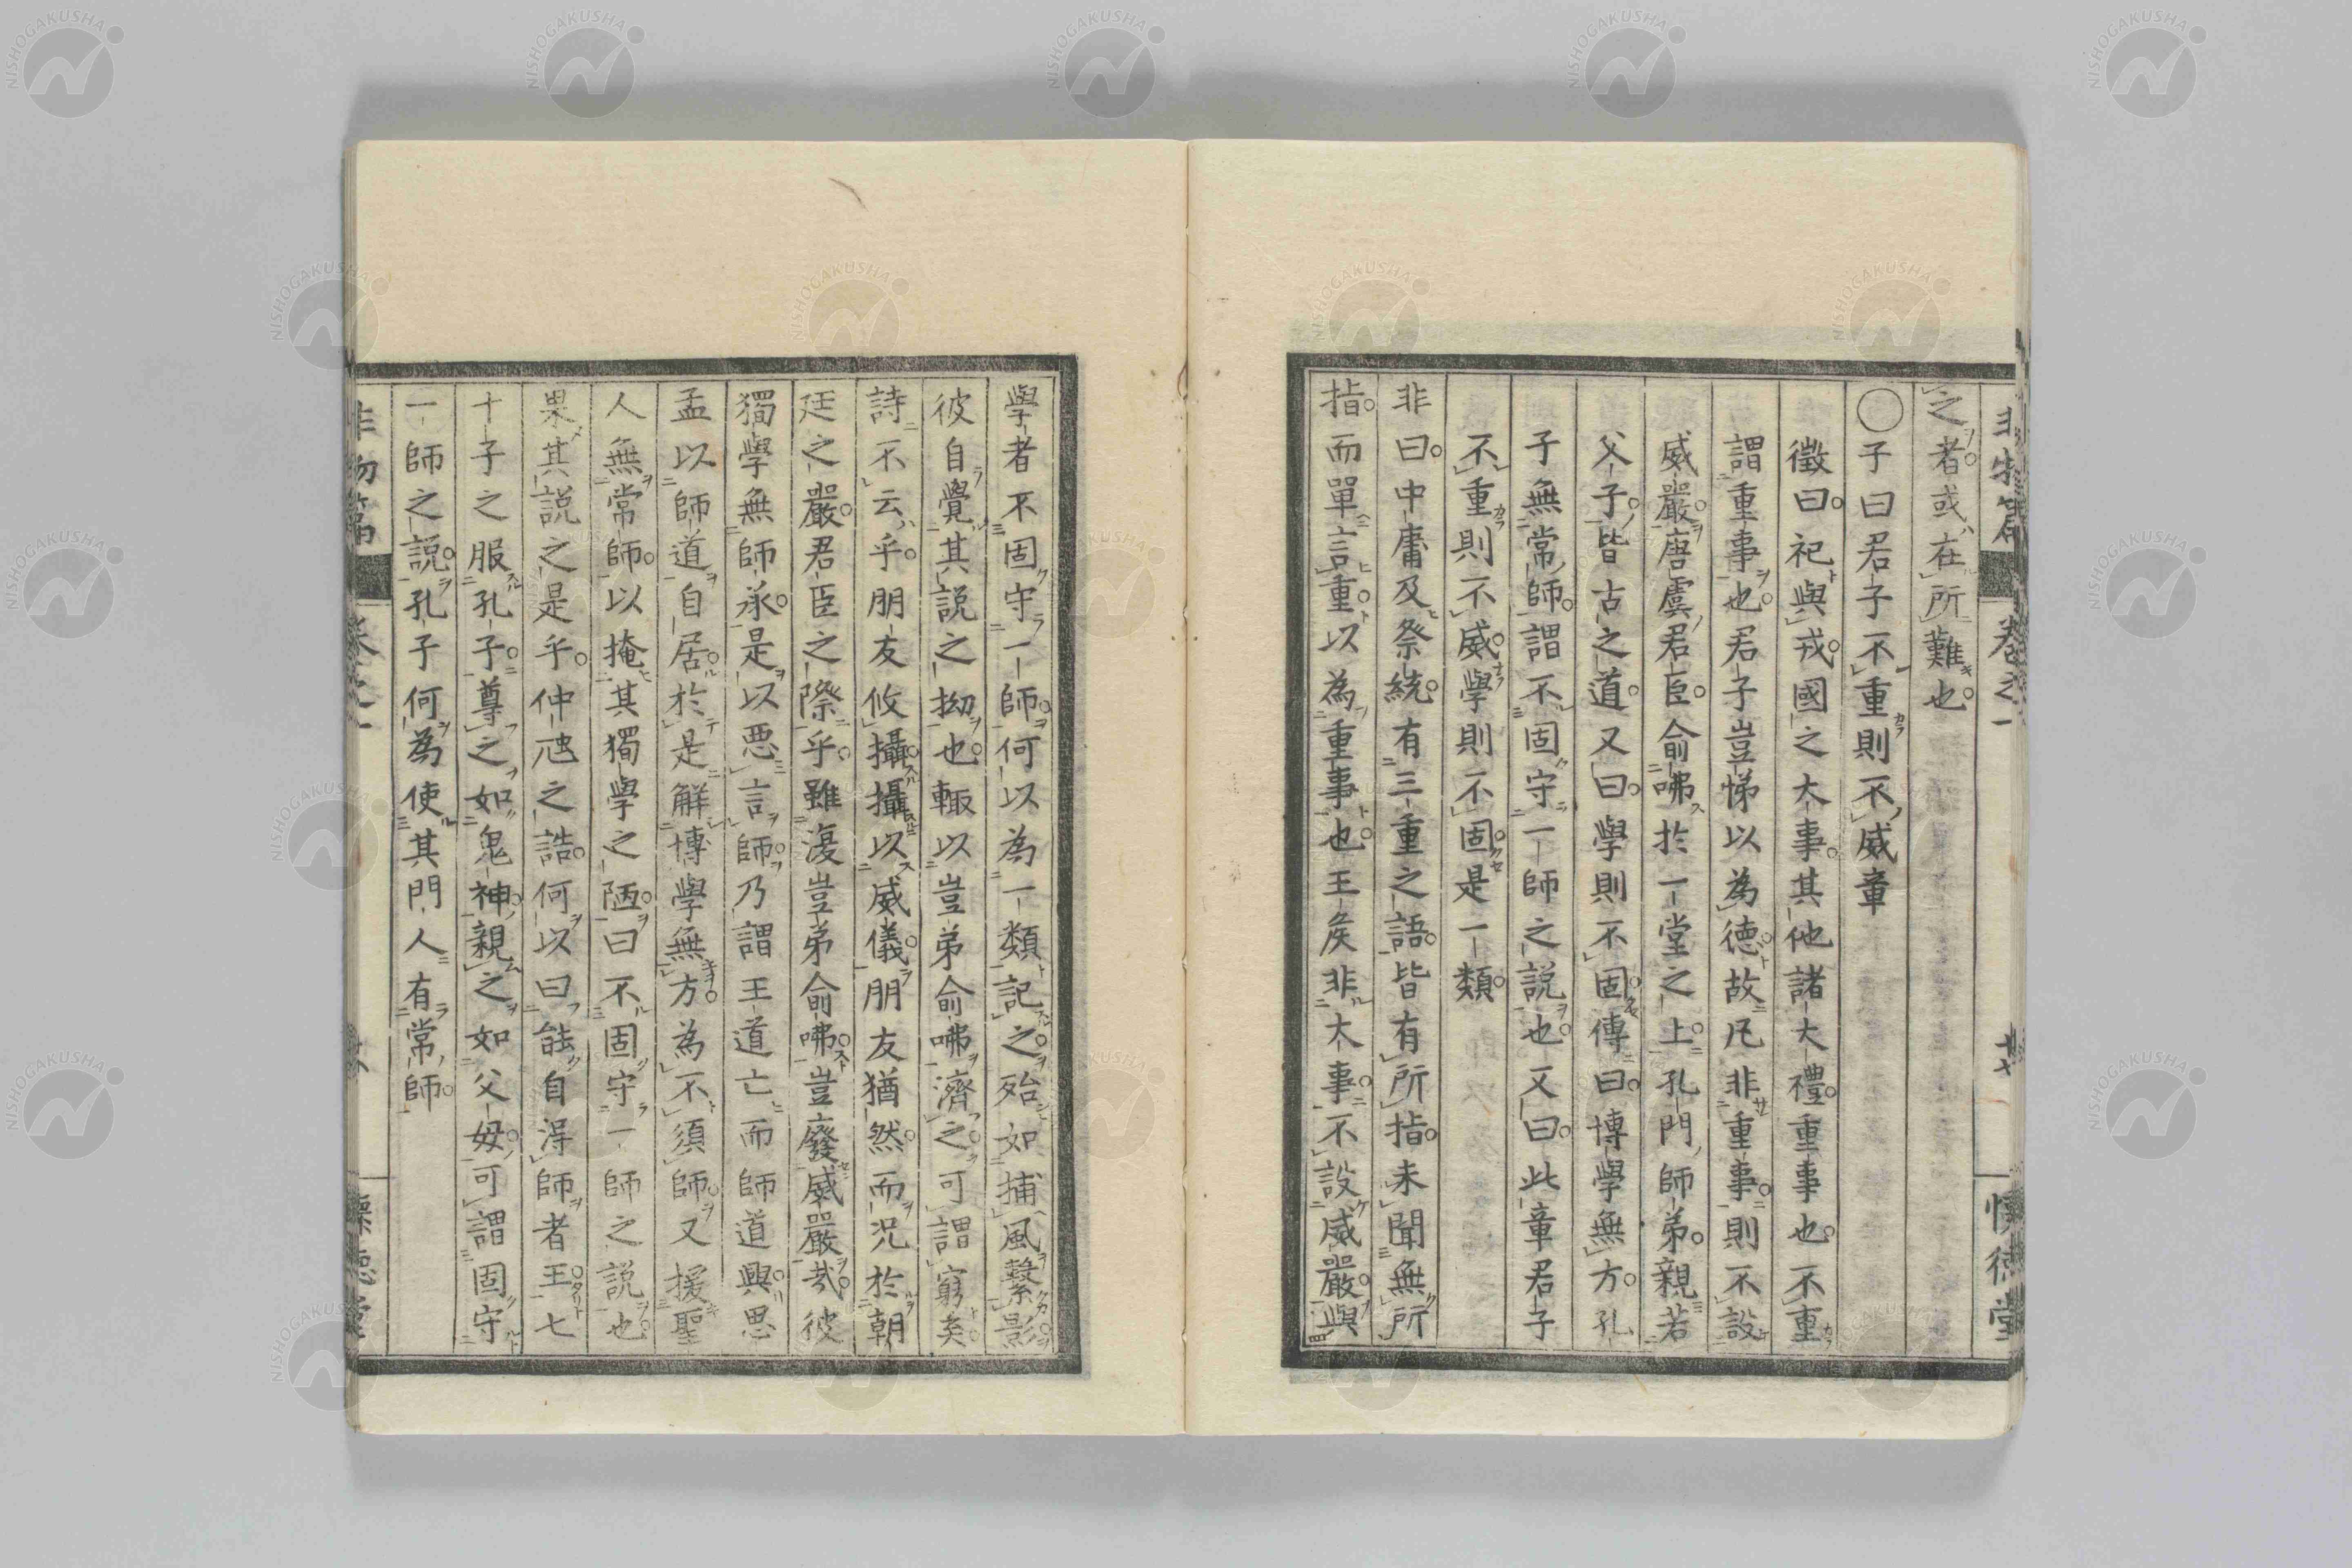 之者或在所難也
〇子曰君子不重則不威章
徵曰祀與戎國之大事其他諸大禮重事也不重
謂重事也君子豈悌以為德故凡非重事則不設
威嚴唐虞君臣俞咈於一堂之上孔門師弟親若
父子皆古之道又曰學則不固傳曰博學無方孔
子無常師謂不固守一師之說也又曰此章君子
不重則不威學則不固是一類
非曰中庸及祭統有三重之語皆有所指未聞無所
指而單言重以為重事也王矦非大事不設威嚴與
學者不固守一師何以為一類記之殆如捕風繫影
彼自覺其說之拗也輙以豈弟俞咈濟之可謂窮矣
詩不云乎朋友攸攝攝以威儀朋友猶然而況於朝
廷之嚴君臣之際乎雖湲豈弟俞咈豈廢威嚴哉彼
獨學無師承是以惡言師乃謂王道亡而師道興思
孟以師道自居於是解博學無方為不須師又援聖
人無常師以掩其獨學之陋曰不固守一師之說也
果其說之是乎仲虺之誥何以曰能自淂師者王七
十子之服孔子尊之如鬼神親之如父母可謂固守
一師之說孔子何為使其門人有常師
非物篇
卷之一
懷德堂
NISHOGAKUSHA